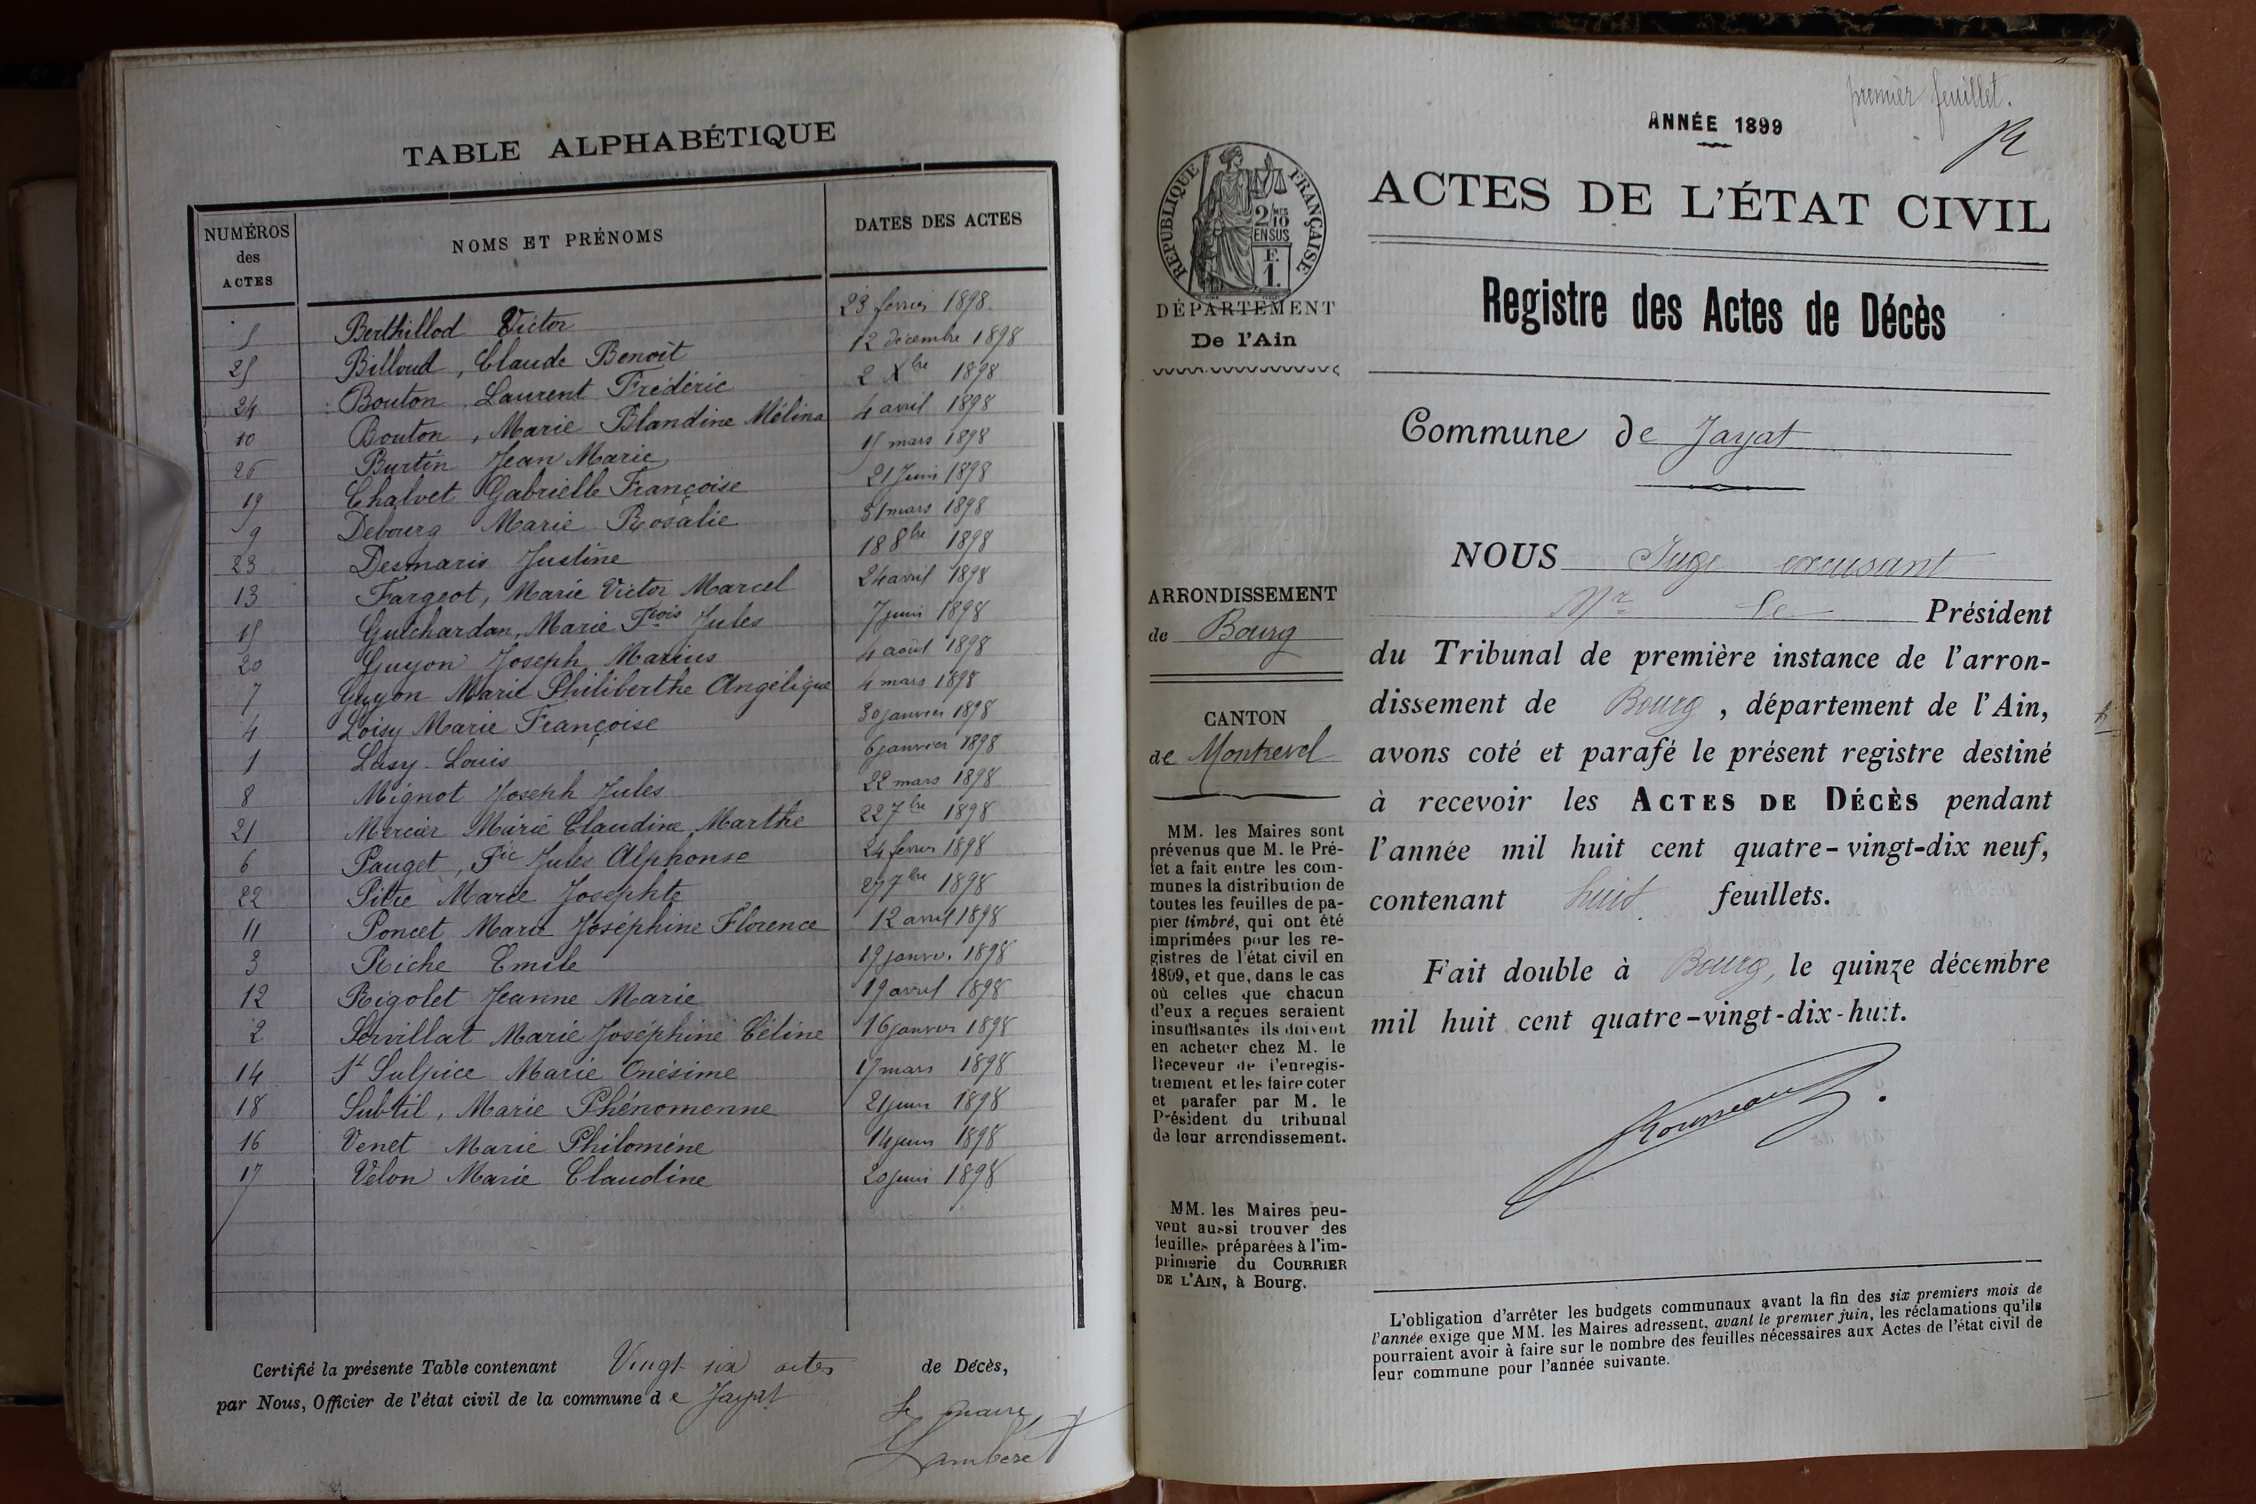 TABLE ALPHABÉTIQUE
NUMÉROS des ACTES NOMS ET PRÉNOMS DATES DES ACTES
5 Berthillod Victor 23 fevrier 1898
25 Billoud, Claude Benoit 12 décembre 1898
24 Bouton, Laurent Frédéric 2 Xbre 1898
10 Bouton, Marie Blandine Mélina 4 avril 1898
26 Burtin Jean Marie 15 mars 1898
19 Chalvet Gabrielle Françoise 21 Juin 1898
9 Debourg Marie Rosalie 31 mars 1898
23 Desmaris Justine 18 8bre 1898
13 Fargeot, Marie Victor Marcel 24 avril 1898
15 Guichardan, Marie Fçois Jules 7 juin 1898
20 Guyon Joseph Marius 4 août 1898
7 Guyon Marie Philiberthe Angélique 4 mars 1898
4 Loisy Marie Françoise 30 janvier 1898
1 Lasy Louis 6 janvier 1898
8 Mignot Joseph Jules 22 mars 1898
21 Mercier Marie Claudine Marthe 22 7bre 1898
6 Pauget, Jules Alphonse 24 fevrier 1898
22 Pitre Marie Josephte 27 7bre 1898
11 Poncet Marie Joséphine Florence 12 avril 1898
3 Riche Emile 19 janvr. 1898
12 Rigolet Jeanne Marie 19 avril 1898
2 Servillat Marie Joséphine Céline 16 janvier 1898
14 St Sulpice Marie Onésime 17 mars 1898
18 Subtil, Marie Phénomenne 21 juin 1898
16 Venet Marie Philomène 14 juin 1898
17 Vélon Marie Claudine 20 juin 1898
Certifié la présente Table contenant Vingt six actes de Décès,
par Nous, Officier de l'état civil de la commune de Jayat
Le maire
Lambert
premier feuillet.
ANNÉE 1899
ACTES DE L'ÉTAT CIVIL
RÉPUBLIQUE FRANÇAISE
2/10 MES
EN SUS
F.
1.
DÉPARTEMENT
De l'Ain
Registre des Actes de Décès
Commune de Jayat
ARRONDISSEMENT
de Bourg
CANTON
de Montrevel
MM. les Maires sont
prévenus que M. le Pré-
fet a fait entre les com-
munes la distribution de
toutes les feuilles de pa-
pier timbré, qui ont été
imprimées pour les re-
gistres de l'état civil en
1899, et que, dans le cas
où celles que chacun
d'eux a reçues seraient
insuffisantes ils doivent
en acheter chez M. le
Receveur de l'enregis-
trement et les faire coter
et parafer par M. le
Président du tribunal
de leur arrondissement.
MM. les Maires peu-
vent aussi trouver des
feuilles préparées à l'im-
primerie du COURRIER
DE L'AIN, à Bourg.
NOUS Juge excusant
Mr le Président
du Tribunal de première instance de l'arron-
dissement de Bourg, département de l'Ain,
avons coté et parafé le présent registre destiné
à recevoir les ACTES DE DÉCÈS pendant
l'année mil huit cent quatre-vingt-dix neuf,
contenant huit feuillets.
Fait double à Bourg, le quinze décembre
mil huit cent quatre-vingt-dix-huit.
L'obligation d'arrêter les budgets communaux avant la fin des six premiers mois de
l'année exige que MM. les Maires adressent, avant le premier juin, les réclamations qu'ils
pourraient avoir à faire sur le nombre des feuilles nécessaires aux Actes de l'état civil de
leur commune pour l'année suivante.